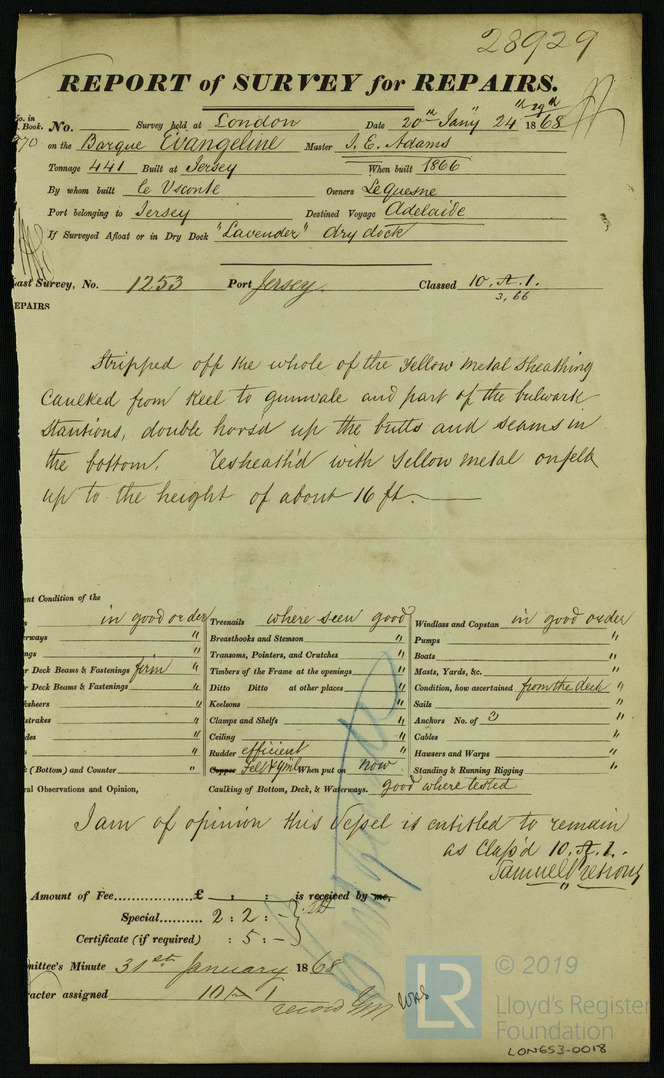 28929
REPORT of SURVEY for REPAIRS.
No. in Book. No. Survey held at London Date 20th Jany 24th 29th 1868
970 on the Barque Evangeline Master J. E. Adams
Tonnage 441 Built at Jersey When built 1866
By whom built Le Vsconte Owners Le Quesne
Port belonging to Jersey Destined Voyage Adelaide
If Surveyed Afloat or in Dry Dock "Lavender" dry dock
ast Survey, No. 1253 Port Jersey. Classed 10. A. 1.
3, 66
EPAIRS
Stripped off the whole of the Yellow Metal Sheathing
Caulked from Keel to gunwale and part of the bulwark
Stantions, double horsd up the butts and seams in
the bottom. Resheath'd with Yellow metal on felt
up to the height of about 16 ft.
ent Condition of the
s in good order Treenails where seen good Windlass and Capstan in good order
rways " Breasthooks and Stemson " Pumps "
ngs " Transoms, Pointers, and Crutches " Boats "
r Deck Beams & Fastenings firm " Timbers of the Frame at the openings " Masts, Yards, &c. "
r Deck Beams & Fastenings " Ditto Ditto at other places " Condition, how ascertained from the deck "
ksheers " Keelsons " Sails "
strakes " Clamps and Shelfs " Anchors No. of 3 "
des " Ceiling " Cables "
s " Rudder efficient Hawsers and Warps "
(Bottom) and Counter " Copper Felt & Yml When put on now Standing & Running Rigging "
ral Observations and Opinion, Caulking of Bottom, Deck, & Waterways. good where tested
I am of opinion this Vessel is entitled to remain
as Class'd 10. A. 1.
Samuel Pretious
Amount of Fee £ : : is received by me,
Special 2 : 2 : -
Certificate (if required) : 5 : -
mittee's Minute 31st January 1868
racter assigned 10 A 1
record
© 2019
LR
Lloyd's Register
Foundation
LON653-0018